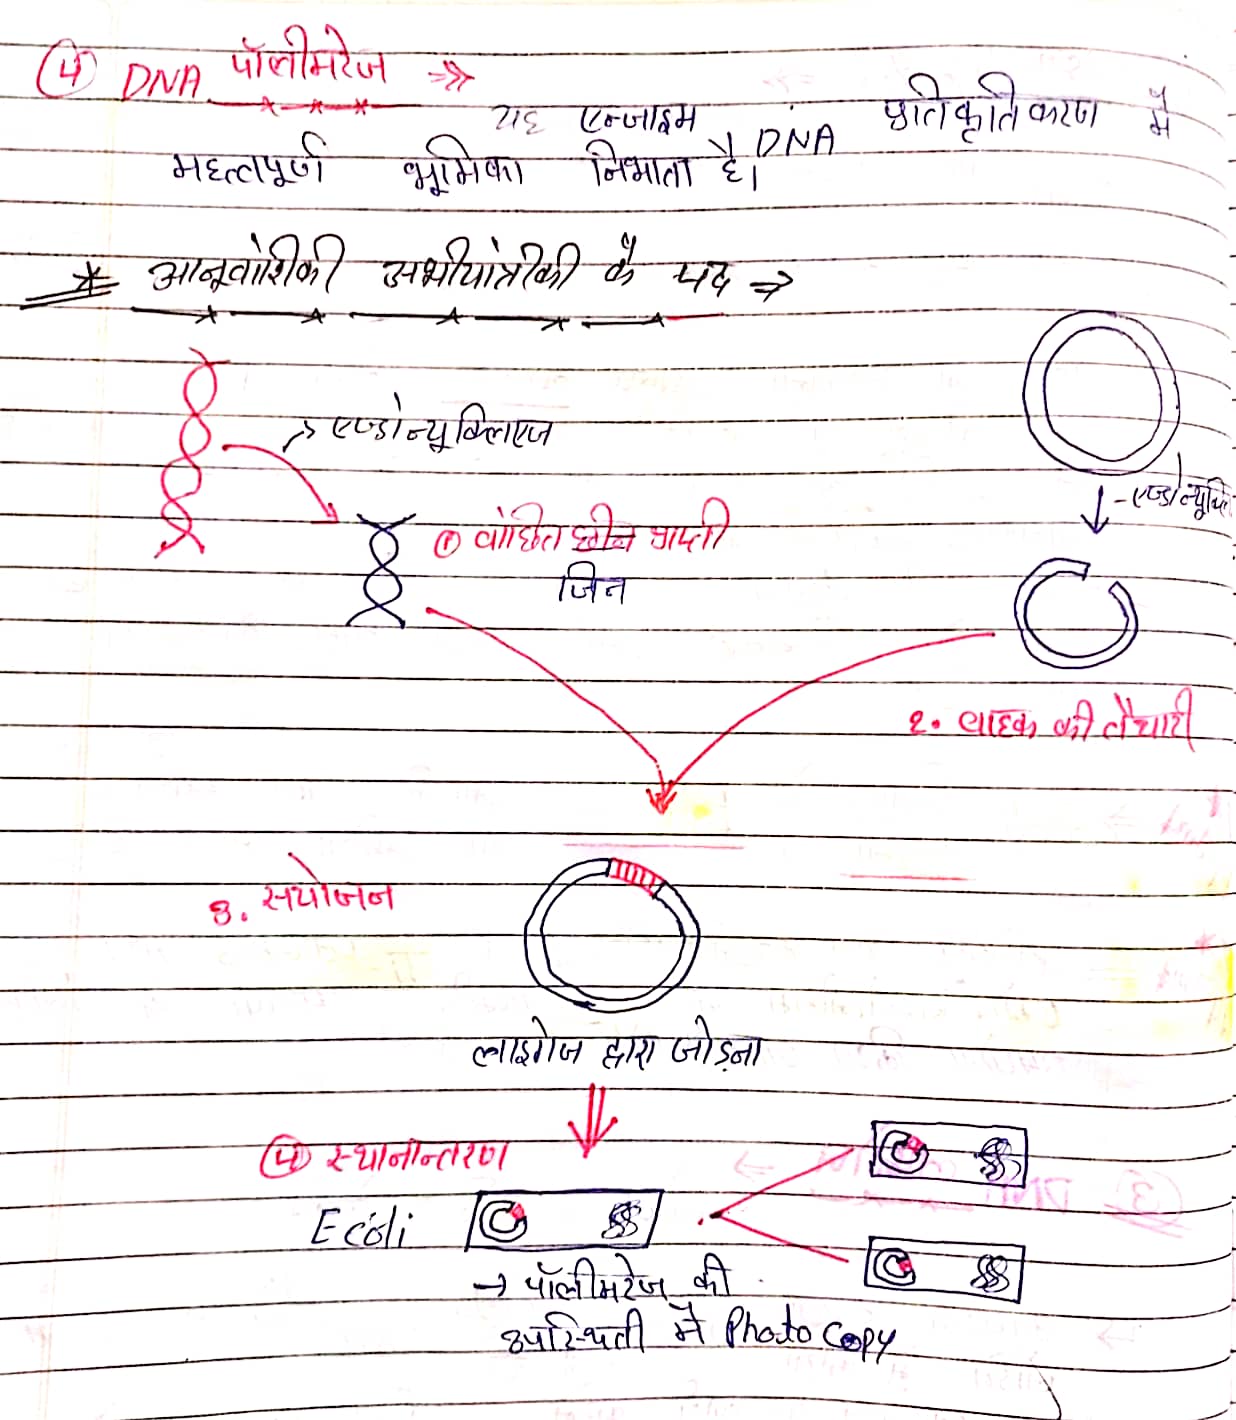 ④ DNA पॉलीमरेज ->>
यह एन्जाइम DNA प्रतिकृतिकरण में
महत्तपूर्ण भूमिका निभाता है।
* आनूवांशिकी अभीयांत्रीकी के पद ⇒
→ एण्डोन्यूक्लिएज
- एण्डोन्यूक्लि
① वांछित छीन प्राप्ती
जिन
२. वाहक की तैयारी
३. सयोजन
लाइगेज द्वारा जोड़ना
④ स्थानान्तरण
Ecoli
→ पॉलीमरेज की
उपस्थिती में Photo Copy